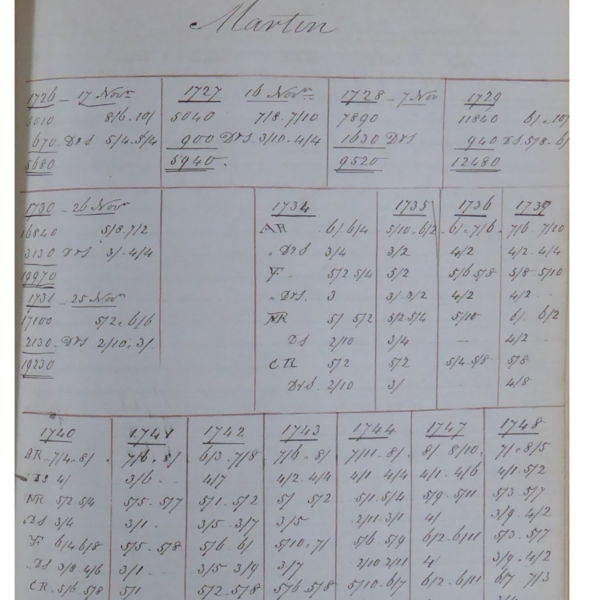 Martin
1726 - 17 Novr 1727 16 Novr 1728 - 7 Nov 1729
5010 8/6 . 10/ 5040 7/8 . 7/10 7890 11840 6/ . 10/
670 . Drs 5/4 . 5/4 900 Drs . 3/10 . 4/4 1630 Drs 940 Drs 5/8 .
5680 5940 . 9520 12480
1730 - 26 Novr 1734 1735 1736 1739
16840 5/8 7/2 AR 6/ 6/4 5/10 . 6/2 6/ . 7/6 . 7/6 . 7/10
3130 Drs 3/ . 4/4 . Drs 3/4 3/2 4/2 4/2 . 4/4
19970 F . 5/2 5/4 5/2 5/6 5/8 5/8 . 5/10
1731 - 25 Novr . Drs . 3 3/ . 3/2 4/2 4/2 ..
17100 5/2 . 6/6 NR 5/ 5/2 5/2 5/4 5/10 6/ . 6/2
2130 . Drs 2/10 . 3/ DS 2/10 3/4 — 4/2 .
19230 CR 5/2 5/2 5/4 . 5/8 5/8
Drs . 2/10 3/ — 4/8
1740 1741 1742 1743 1744 1747 1748
AR . 7/4 . 8/ . 7/6 . 8/ 6/3 . 7/8 7/6 . 8/ 7/11 . 8/ . 8/ 8/10 . 7/ . 8/5
4/ 3/6 .. 4/7 4/2 . 4/4 4/1 4/4 4/1 . 4/6 4/1 . 5/2
NR 5/2 . 5/4 5/5 . 5/7 5/1 . 5/2 5/ 5/2 5/1 . 5/4 5/9 . 5/11 5/3 . 5/7
DS 3/4 3/1 . 3/5 . 3/7 3/5 2/11 . 3/1 4/ 3/9 . 4/2
F 6/4 6/8 5/5 . 5/8 5/6 . 6/ 5/10 . 7/ 5/6 5/9 6/2 . 6/11 5/3 . 5/7
. DS 3/8 . 4/6 3/1 .. 3/5 . 3/9 3/7 2/10 2/11 4 3/9 . 4/2
CR . 5/6 5/8 5/1 5/2 . 5/8 5/6 5/8 5/10 . 6/7 6/2 . 6/11 6/7 7/3